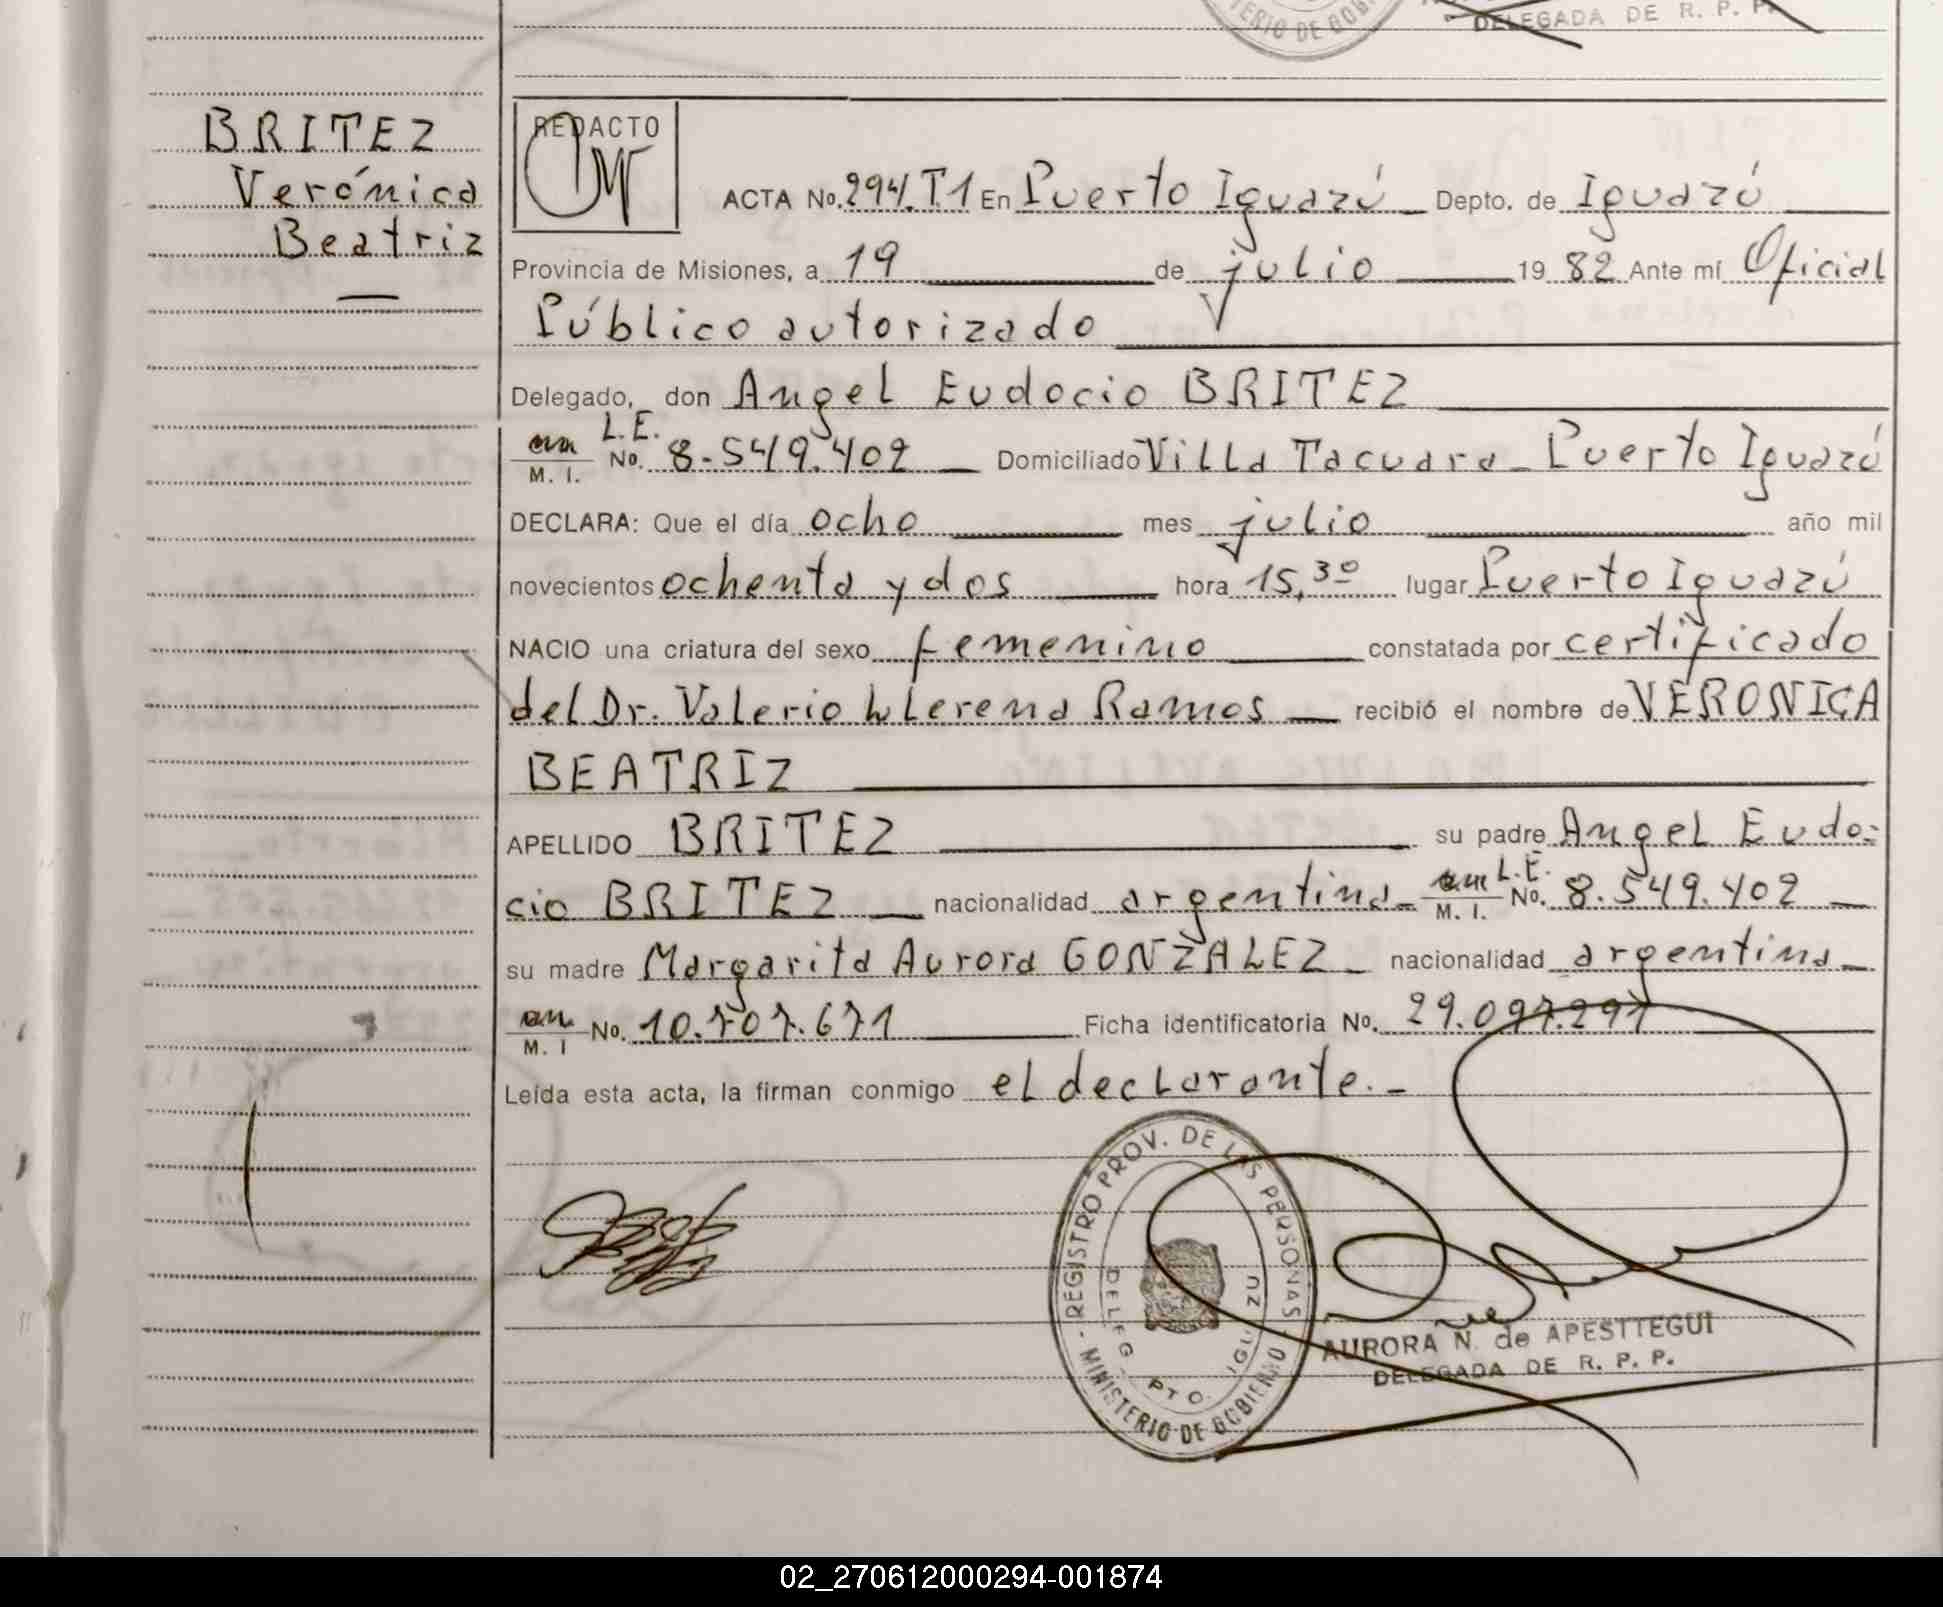 DELEGADA DE R. P. P.
BRITEZ
Verónica
Beatriz
REDACTO
ACTA No. 294.T.1 En Puerto Iguazú Depto. de Iguazú
Provincia de Misiones, a 19 de julio 19 82 Ante mí Oficial
Público autorizado
Delegado, don Angel Eudocio BRITEZ
M. I. L.E. No. 8.549.402 Domiciliado Villa Tacuara - Puerto Iguazú
DECLARA: Que el día ocho mes julio año mil
novecientos ochenta y dos hora 15,30 lugar Puerto Iguazú
NACIO una criatura del sexo femenino constatada por certificado
del Dr. Valerio W Lerena Ramos recibió el nombre de VERONICA
BEATRIZ
APELLIDO BRITEZ su padre Angel Eudo=
cio BRITEZ nacionalidad argentina - M. I. L.E. No. 8.549.402
su madre Margarita Aurora GONZALEZ - nacionalidad argentina -
M. I No. 10.707.671 Ficha identificatoria No. 29.097.297
Leída esta acta, la firman conmigo el declarante.-
REGISTRO PROV. DE LAS PERSONAS - MINISTERIO DE GOBIERNO
DELEG. PTO. IGUAZU
AURORA N. de APESTTEGUI
DELEGADA DE R. P. P.
02_270612000294-001874